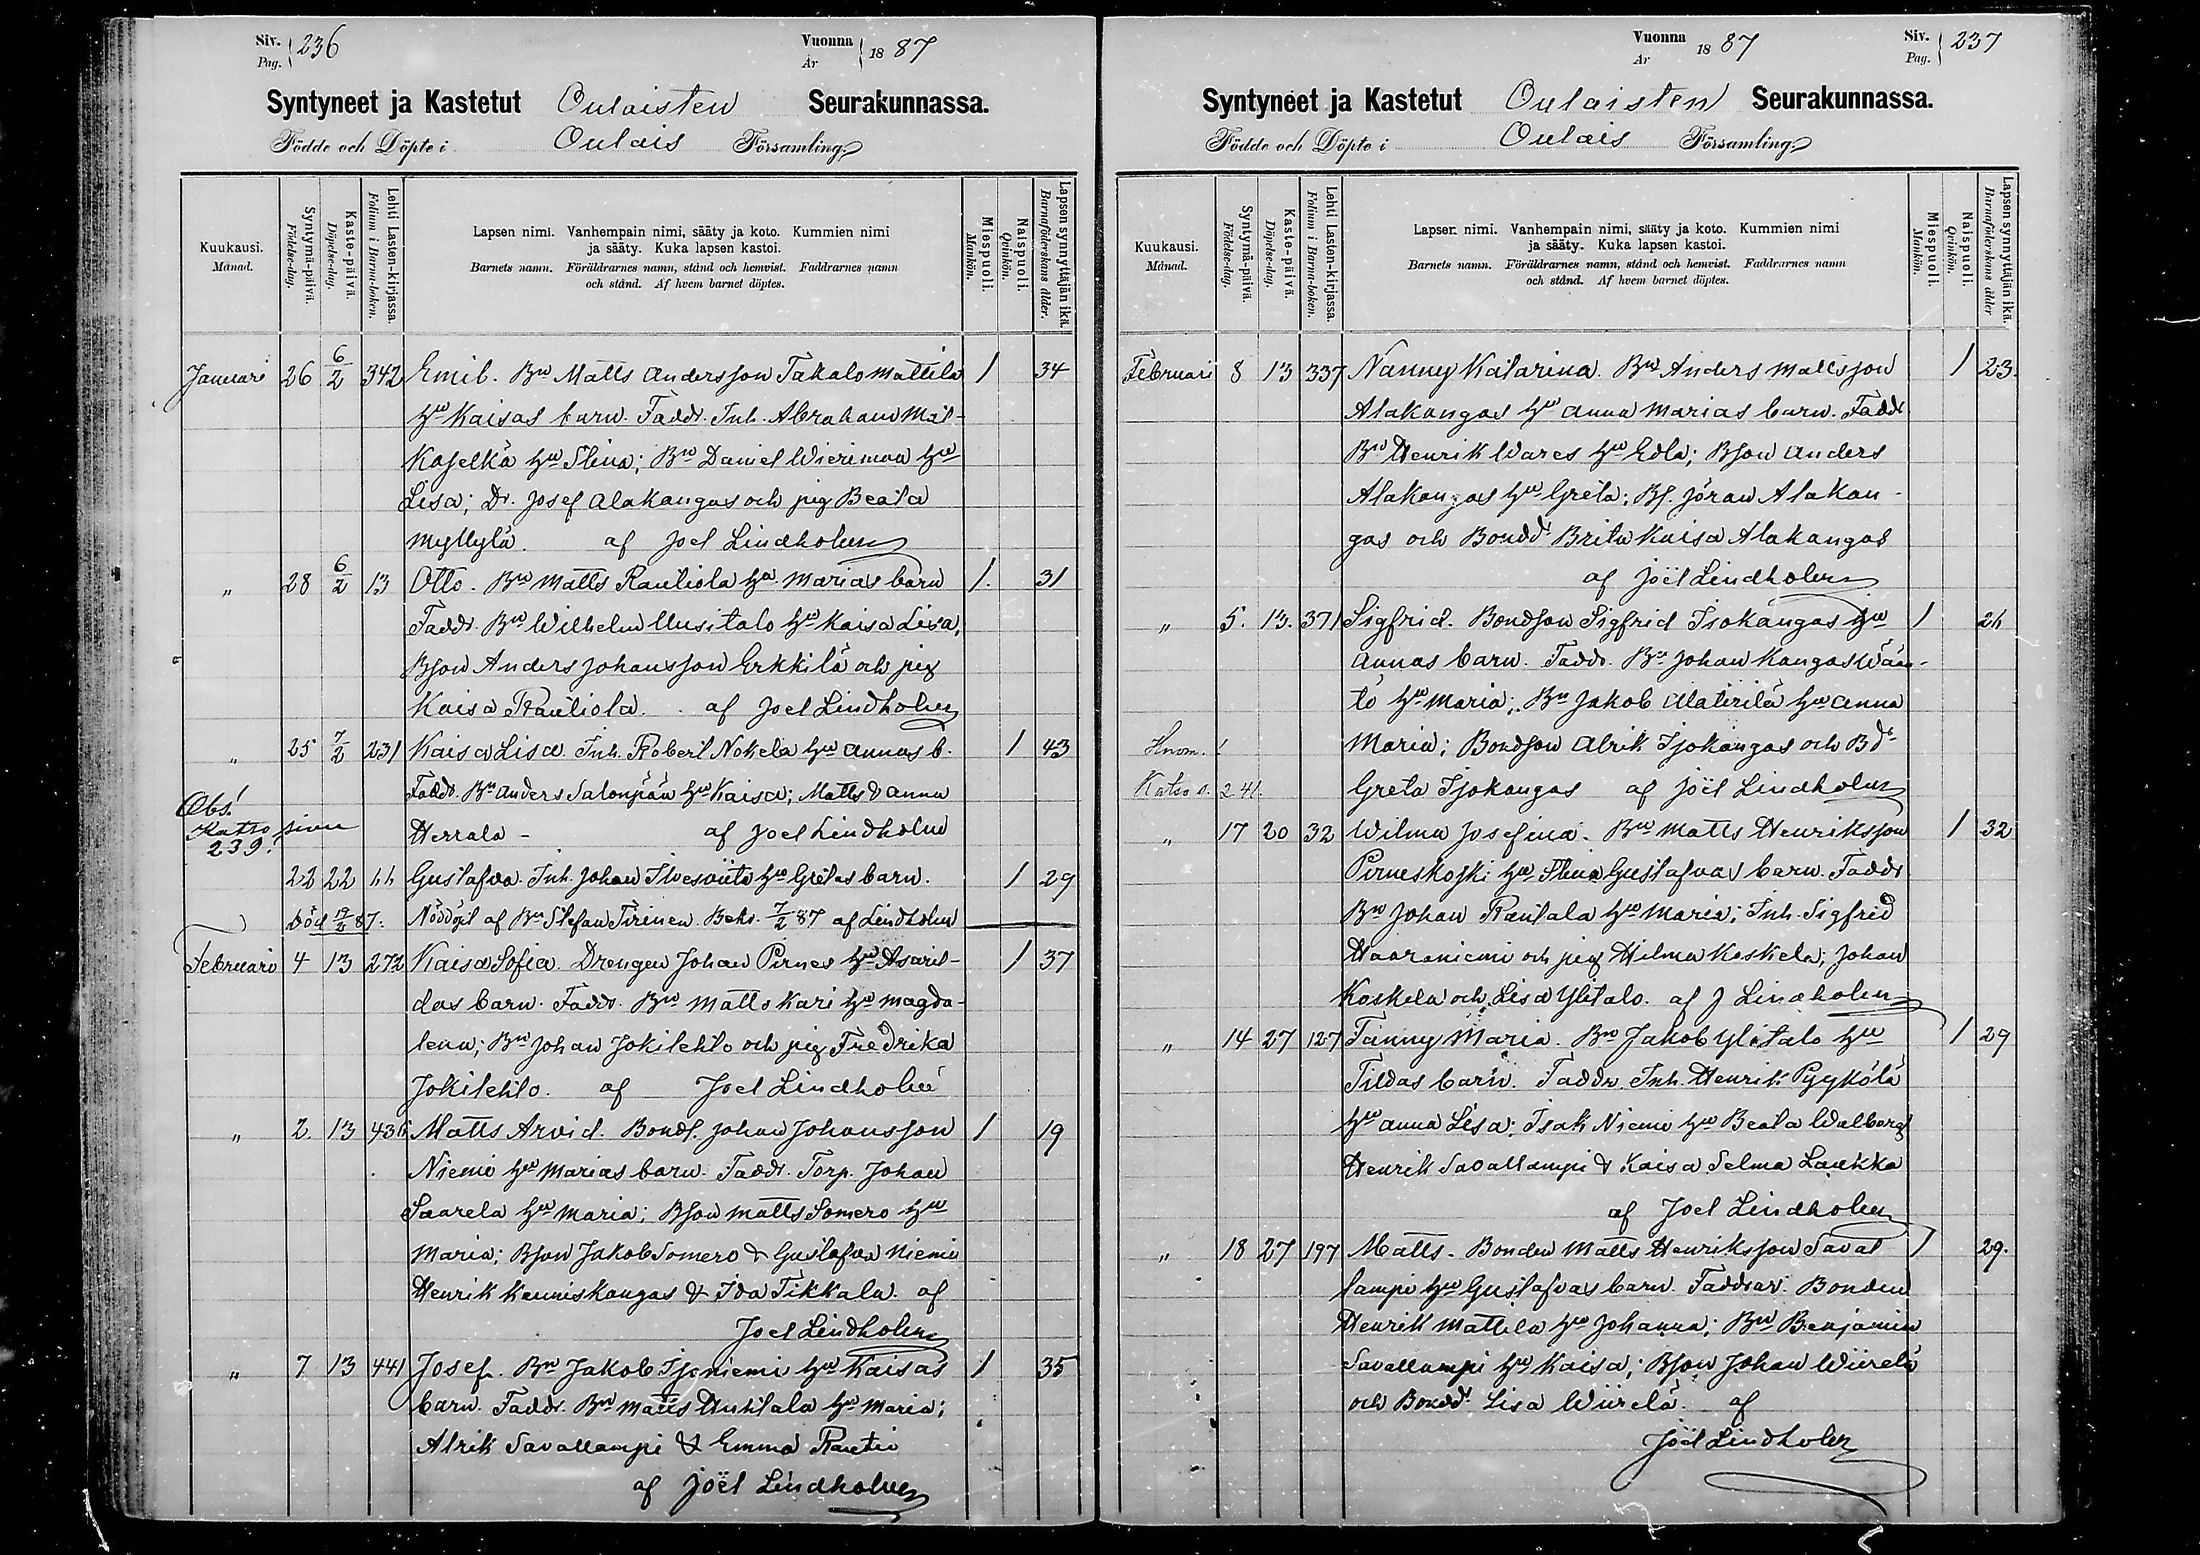 Siv. Pag. 236
Vuonna År 1887
Syntyneet ja Kastetut Oulaisten Seurakunnassa.
Födde och Döpte i Oulais Församling.
Kuukausi. Månad.
Syntymä-päivä. Födelse-dag.
Kaste-päivä. Döpelse-dag.
Lehti Lasten-kirjassa. Folium i Barna-boken.
Lapsen nimi. Vanhempain nimi, sääty ja koto. Kummien nimi
ja sääty. Kuka lapsen kastoi.
Barnets namn. Föräldrarnes namn, stånd och hemvist. Faddrarnes namn
och stånd. Af hvem barnet döptes.
Miespuoli. Mankön.
Naispuoli. Qvinkön.
Lapsen synnyttäjän ikä. Barnaföderskans ålder.
Januari 26 6/2 342 Emil. Bn Matts Andersson Takalo Mattila 1 34
hu Kaisas barn. Faddr. Inh. Abraham Mat-
Koselka hu Stina; Bn Daniel Wierimaa hu
Lisa; Dr. Josef Alakangas och pig Beata
Myllylä. af Joel Lindholm
" 28 6/2 13 Otto. Bn Matts Rautiola hu Marias barn 1. 31
Faddr. Bn Wilhelm Uusitalo hu Kaisa Lisa,
Bson Anders Johansson Erkkilä och pig
Kaisa Rautiola. af Joel Lindholm
" 25 7/2 231 Kaisa Lisa. Inh. Robert Nokela hu Annas b. 1 43
Faddr. Bn Anders Salonpää hu Kaisa; Matts & Anna
Obs!
Katso sivu
239.
Herrala - af Joel Lindholm
22 22 Gustafva. Inh. Johan hu Gretas barn. 1 29
Död 19/2 87. Nöddöpt af Bn Stefan Tirinen Bekr. 7/2 87 af Lindholm
Februari 4 13 272 Kaisa Sofia. Drengen Johan Pirnes hu Asaril-
das barn. Faddr. Bn Matts Kari hu Magda- 1 37
lena; Bn Johan Jokilehto och pig Fredrika
Jokilehto. af Joel Lindholm
" 2. 13 436 Matts Arvid. Bonds. Johan Johansson 1 19
Niemi hu Marias barn. Faddr. Torp. Johan
Saarela hu Maria; Bson Matts Somero hu
Maria; Bson Jakob Somero & Gustafva Niemi
Henrik Kauniskangas & Ida Tikkala. af
Joel Lindholm
" 7 13 441 Josef. Bn Jakob Isoniemi hu Kaisas 1 35
barn. Faddr. Bn Matts Huhtala hu Maria;
Alrik Savallampi & Emma Rautio
af Joël Lindholm
Vuonna År 1887
Siv. Pag. 237
Syntyneet ja Kastetut Oulaisten Seurakunnassa.
Födde och Döpte i Oulais Församling.
Kuukausi. Månad.
Syntymä-päivä. Födelse-dag.
Kaste-päivä. Döpelse-dag.
Lehti Lasten-kirjassa. Folium i Barna-boken.
Lapsen nimi. Vanhempain nimi, sääty ja koto. Kummien nimi
ja sääty. Kuka lapsen kastoi.
Barnets namn. Föräldrarnes namn, stånd och hemvist. Faddrarnes namn
och stånd. Af hvem barnet döptes.
Miespuoli. Mankön.
Naispuoli. Qvinkön.
Lapsen synnyttäjän ikä. Barnaföderskans ålder
Februari 8 13 337 Nanny Katarina. Bn Anders Mattsson 1 23.
Alakangas hu Anna Marias barn. Faddr
Bn Henrik Wares hu Edla; Bson Anders
Alakangas hu Greta; Bs. Jöran Alakan-
gas och Bondd Brita Kaisa Alakangas
af Joël Lindholm
" 5. 13. 371 Sigfrid. Bondson Sigfrid Isokangas hu 1 26
Annas barn. Faddr. Bn Johan Kangaswään-
tö hu Maria; Bn Jakob Alatirilä hu Anna
Huom.! Maria; Bondson Alrik Isokangas och Bdr
Katso s. 241. Greta Isokangas af Joël Lindholm
" 17 20 32 Wilma Josefina. Bn Matts Henriksson 1 32
Pirneskoski hu Stina Gustafvas barn. Faddr
Bn Johan Rantala hu Maria; Inh. Sigfrid
Haaraniemi och pig Hilma Koskela; Johan
Koskela och Lisa Ylitalo. af J Lindholm
" 14 27 127 Fanny Maria. Bn Jakob Ylitalo hu 1 29
Tildas barn. Faddr. Inh. Henrik Pyykölä
hu Anna Lisa; Isak Niemi hu Beata Walborg
Henrik Savallampi & Kaisa Selma Laukka
af Joel Lindholm
" 18 27 197 Matts. Bonden Matts Henriksson Saval 1 29.
lampi hu Gustafvas barn. Faddrar. Bonden
Henrik Mattila hu Johanna; Bn Benjamin
Savallampi hu Kaisa; Bson Johan Wiirelä
och Bondd. Lisa Wiirelä. af
Joël Lindholm